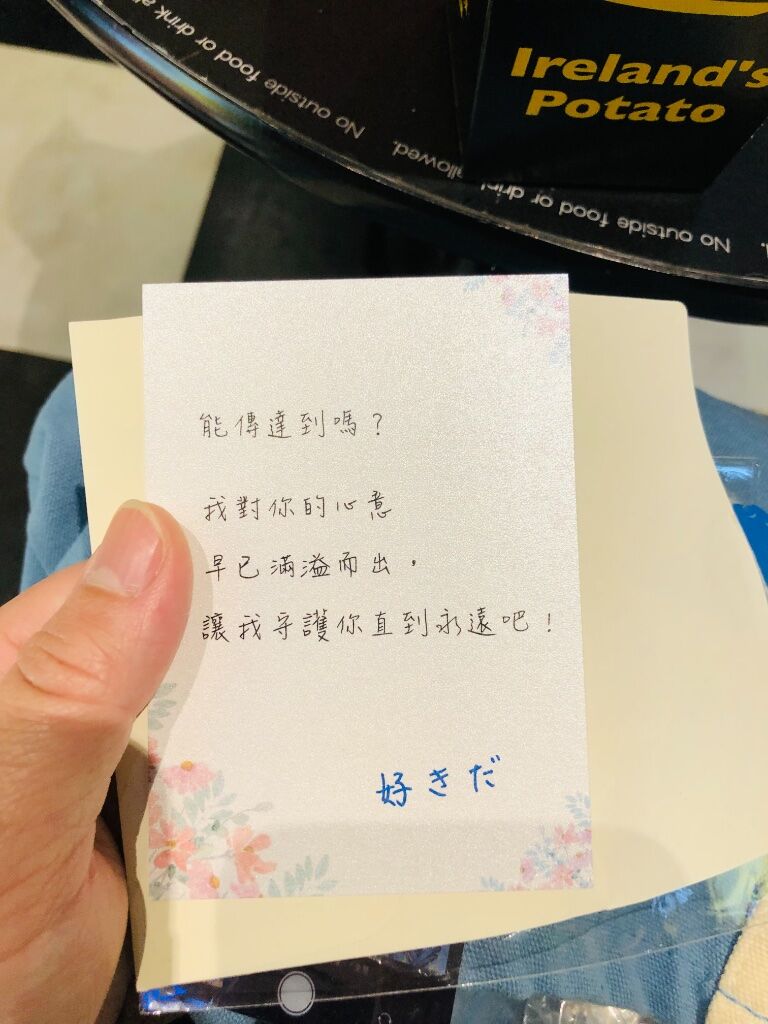 No outside food or drink a
No outside food or drin
allowed.
No outside
d.
Ireland's
Potato
能傳達到嗎？
我對你的心意
早已滿溢而出，
讓我守護你直到永遠吧！
好きだ